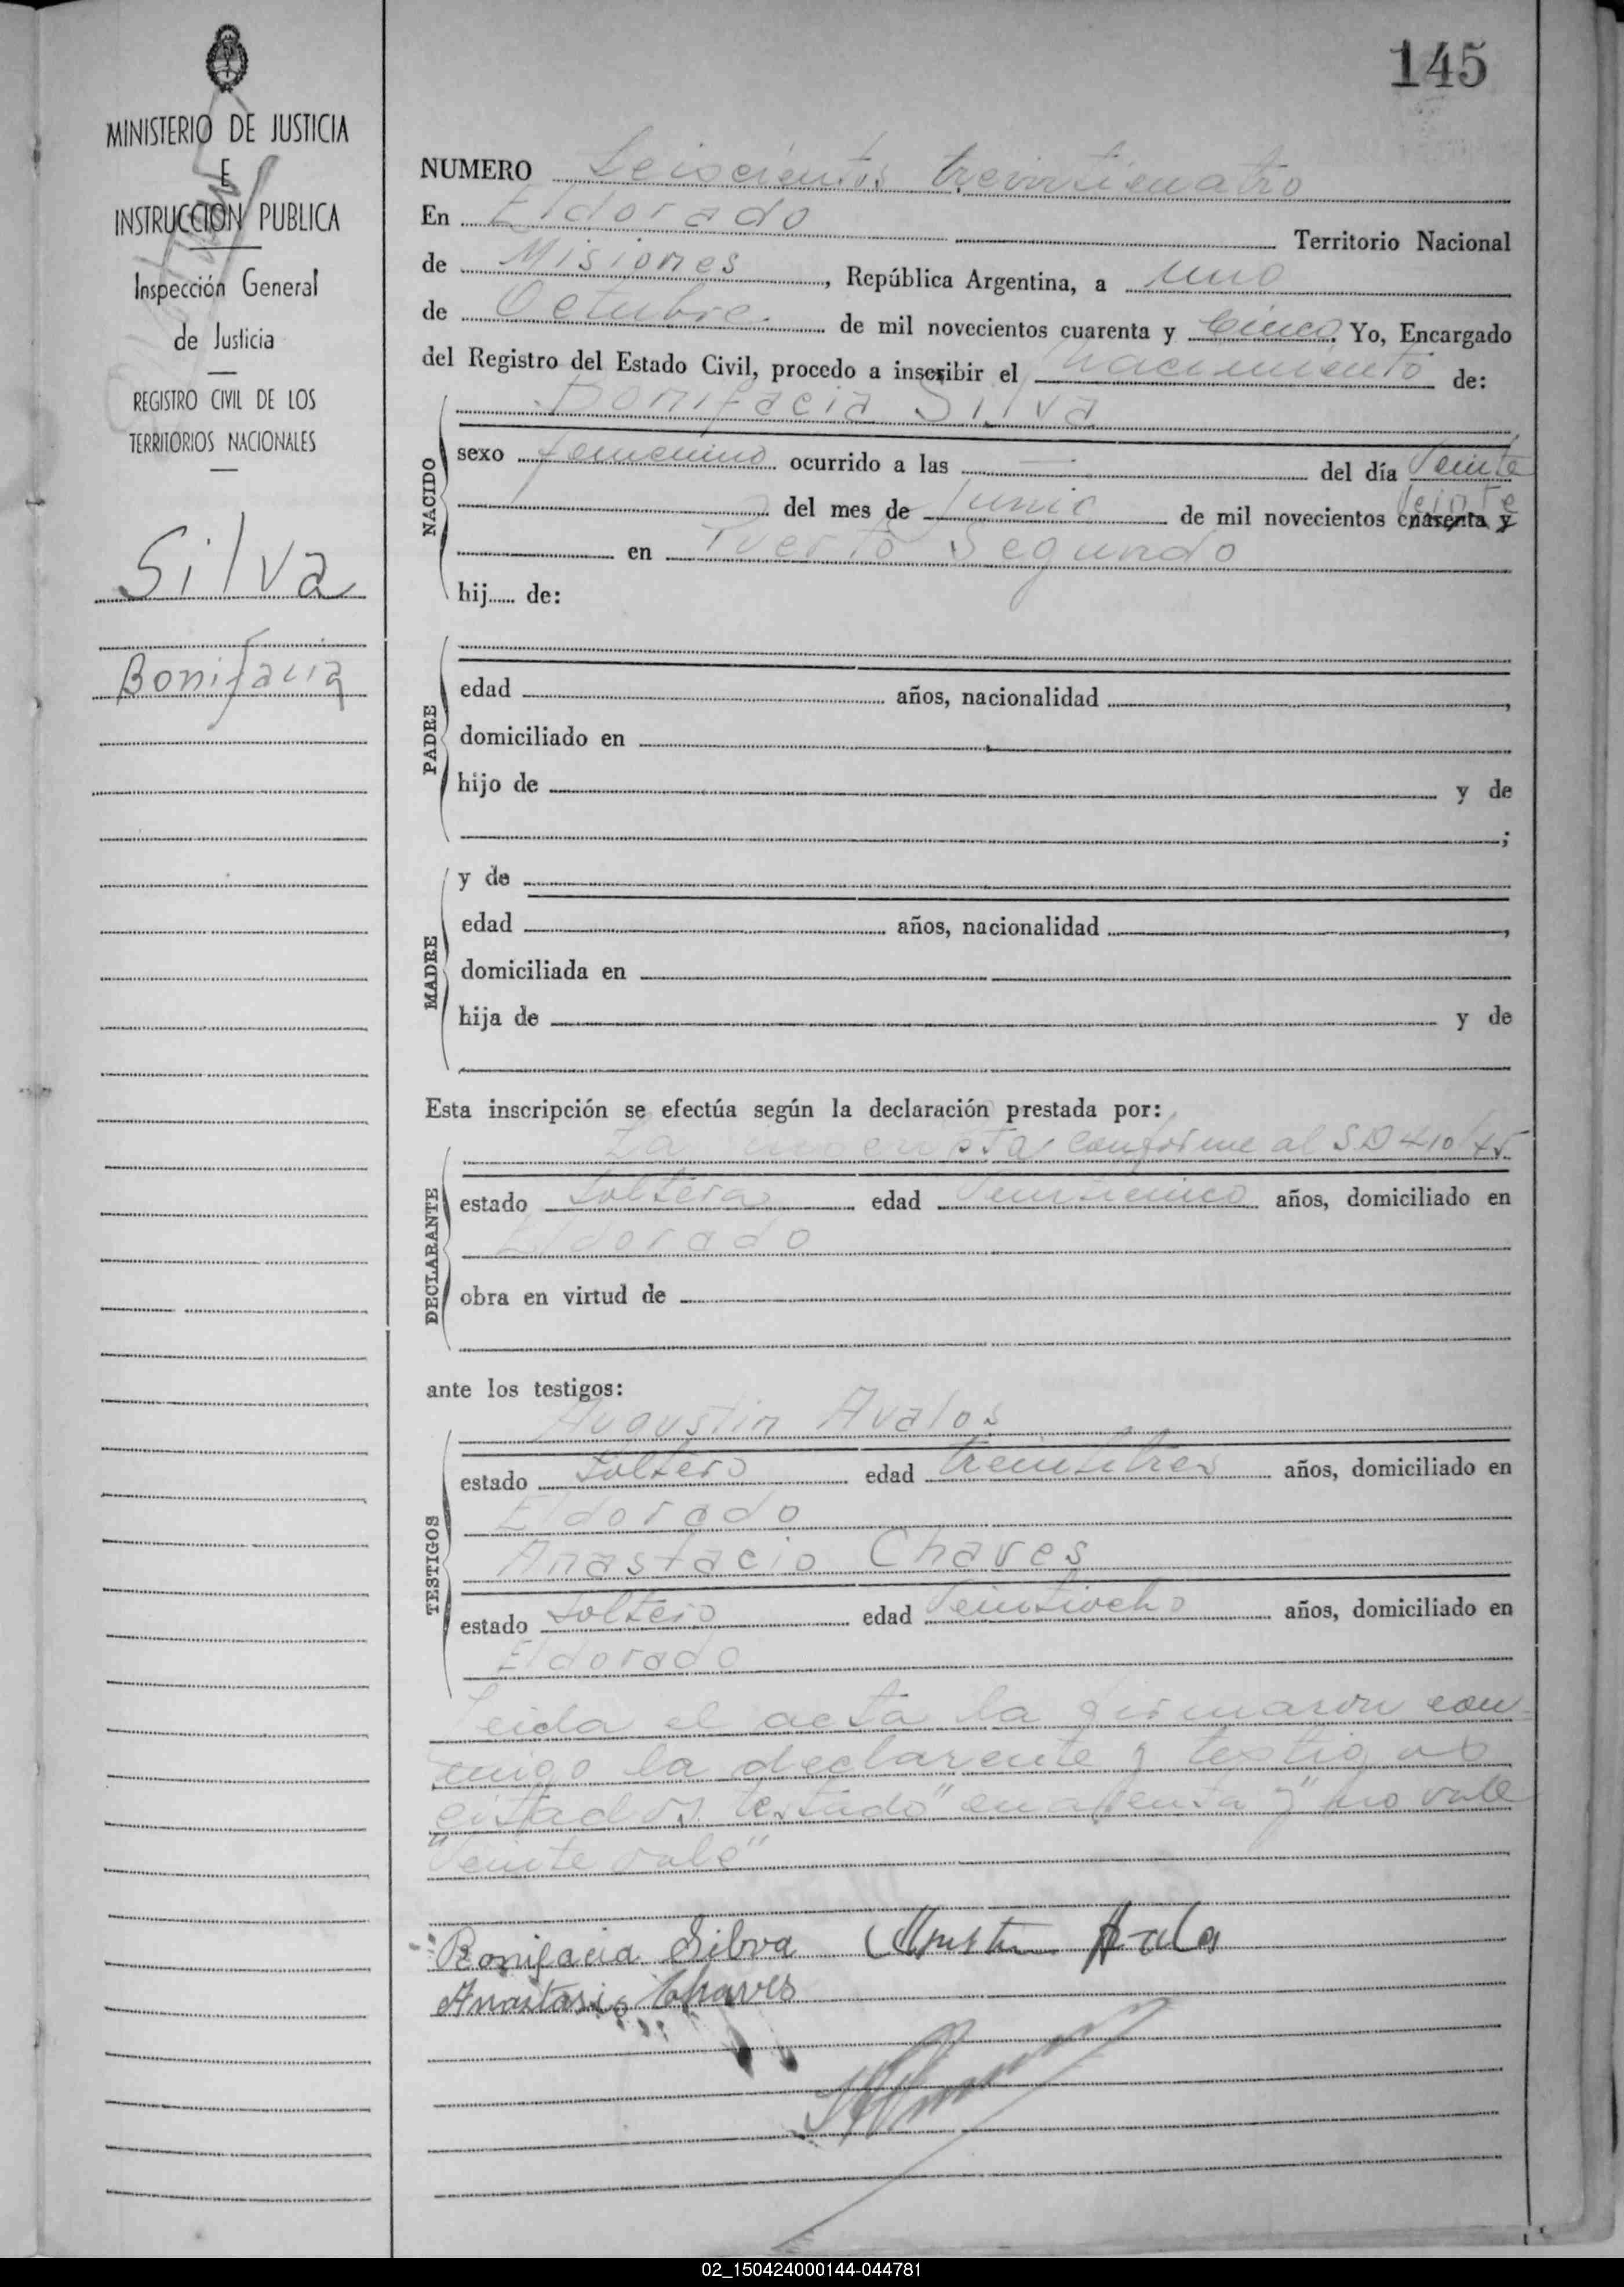 145
MINISTERIO DE JUSTICIA
E
INSTRUCCION PUBLICA
Inspección General
de Justicia
REGISTRO CIVIL DE LOS
TERRITORIOS NACIONALES
Silva
Bonifacia
NUMERO Seiscientos treinticuatro
En Eldorado Territorio Nacional
de Misiones, República Argentina, a uno
de Octubre. de mil novecientos cuarenta y cinco. Yo, Encargado
del Registro del Estado Civil, procedo a inscribir el nacimiento de:
NACIDO
Bonifacia Silva
sexo femenino ocurrido a las — del día Veinte
del mes de Junio de mil novecientos cuarenta y veinte
en Puerto Segundo
hij...... de:
PADRE
edad años, nacionalidad ,
domiciliado en
hijo de y de
;
MADRE
y de
edad años, nacionalidad ,
domiciliada en
hija de y de
Esta inscripción se efectúa según la declaración prestada por:
DECLARANTE
La conforme al S.D 410/45.
estado Soltera edad Veinticinco años, domiciliado en
Eldorado
obra en virtud de
ante los testigos:
TESTIGOS
Augustin Avalos
estado Soltero edad treintitres años, domiciliado en
Eldorado
Anastacio Chaves
estado Soltero edad Veintiocho años, domiciliado en
Eldorado
Leida el acta la firmaron con
migo la declarente y testigos
citados. testado "cuarenta y" no vale
"Veinte vale"
Bonifacia Silva
Anastasio Chaves
02_150424000144-044781